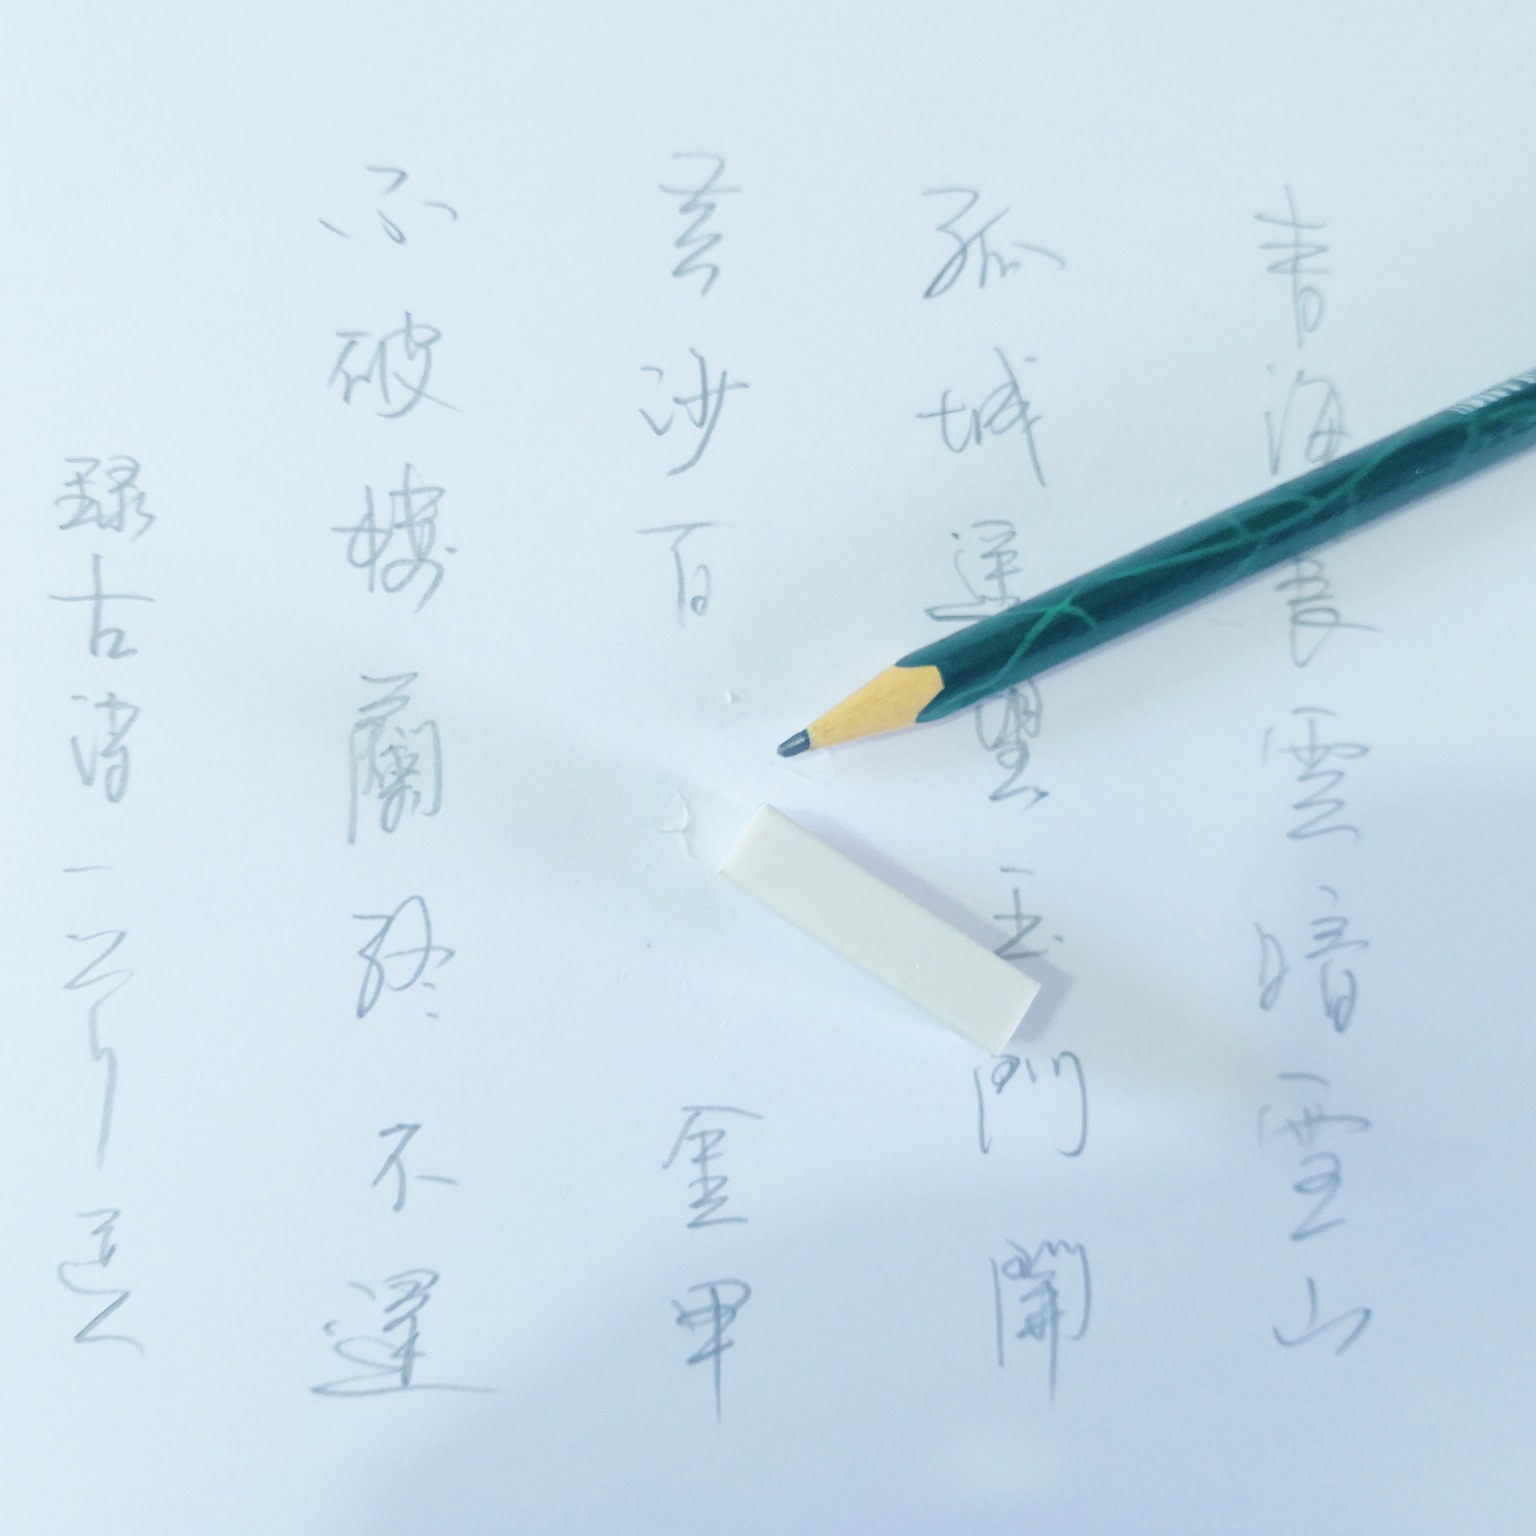 青海長雲暗雪山
孤城遙望玉門關
黃沙百 金甲
不破樓蘭終不還
録古詩一